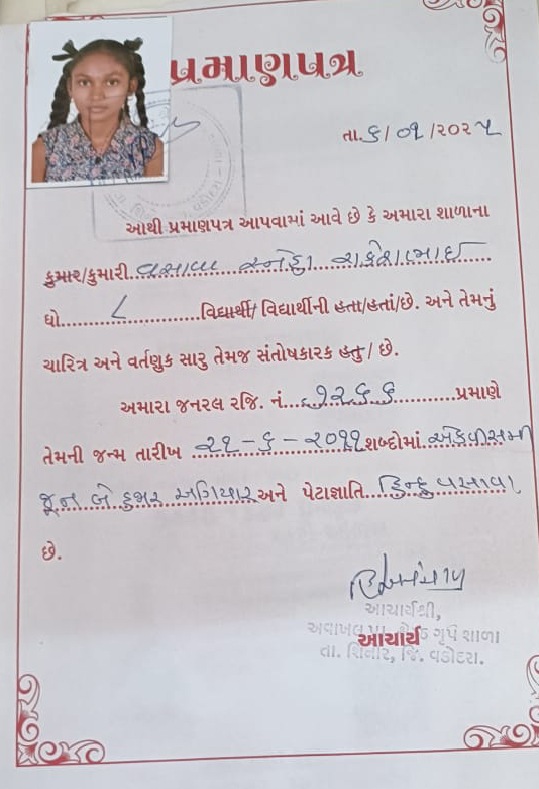 પ્રમાણપત્ર
તા. ૬/૦૧/૨૦૨૫
આથી પ્રમાણપત્ર આપવામાં આવે છે કે અમારા શાળાના
કુમાર/કુમારી વસાવા સ્નેહા રાકેશભાઇ
ધો. ૮ વિદ્યાર્થી/ વિદ્યાર્થીની હતા/હતાં/છે. અને તેમનું
ચારિત્ર અને વર્તણુક સારુ તેમજ સંતોષકારક હતુ/ છે.
અમારા જનરલ રજિ. નં. ૧૨૬૬ પ્રમાણે
તેમની જન્મ તારીખ ૨૧-૬-૨૦૧૧ શબ્દોમાં એકવીસમી
જૂન બે હજાર અગિયાર અને પેટાજ્ઞાતિ હિન્દુ વસાવા
છે.
આચાર્યશ્રી,
અવાખલ ગૃપ શાળા
આચાર્ય
તા. શિનોર, જિ. વડોદરા.